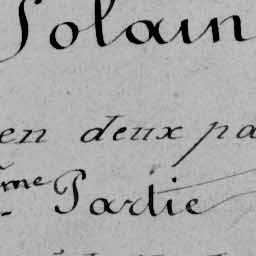 Solain
en deux pa
me Partie